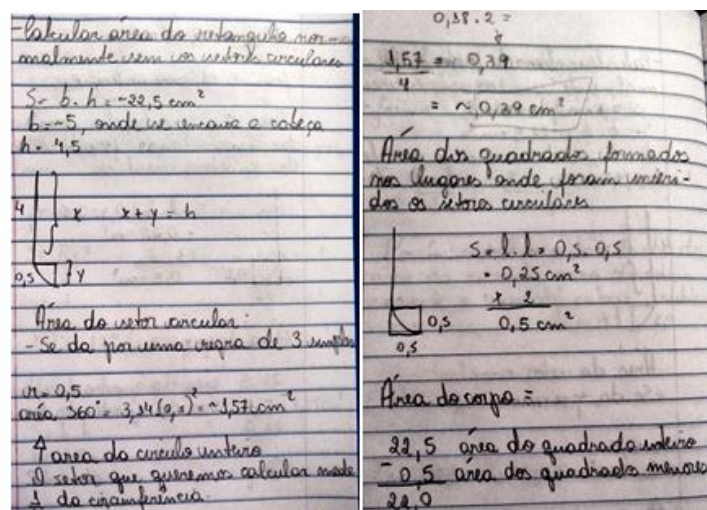 - Calcular área do retangulo nor-
malmente sem os setores circulares
S = b . h = ~22,5 cm²
b = ~5, onde se encaixa a cabeça
h = 4,5
4
x
x + y = h
0,5
y
Área do setor circular:
- Se da por uma regra de 3 simples
r = 0,5
área 360° = 3,14(0,5)² = ~1,57cm²
↑ area do circulo inteiro
O setor que queremos calcular mede
1/4 da circunferência.
0,38 . 2 =
1,57/4 = 0,39
= ~0,39 cm²
Área dos quadrados formados
nos lugares onde foram inseri-
dos os setores circulares
S = l . l = 0,5 . 0,5
= 0,25 cm²
x 2
0,5 cm²
0,5
0,5
Área do corpo =
22,5 área do quadrado inteiro
- 0,5 área dos quadrados menores
22,0